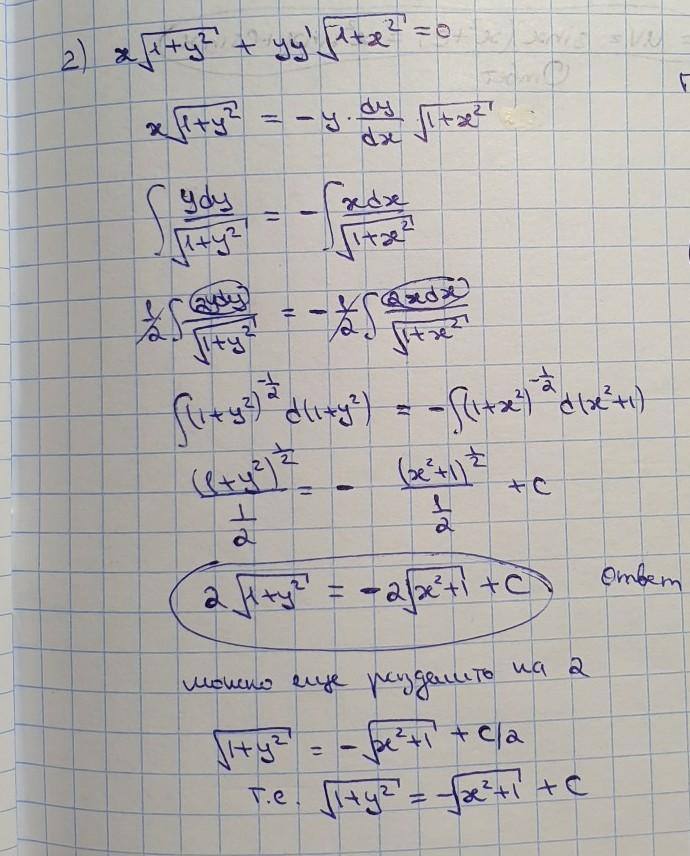 2) x√(1+y²) + yy'√(1+x²) = 0
x√(1+y²) = -y · dy/dx √(1+x²)
∫ ydy/√(1+y²) = -∫ xdx/√(1+x²)
1/2 ∫ 2ydy/√(1+y²) = -1/2 ∫ 2xdx/√(1+x²)
∫(1+y²)^(-1/2) d(1+y²) = -∫(1+x²)^(-1/2) d(x²+1)
(1+y²)^(1/2)/(1/2) = - (x²+1)^(1/2)/(1/2) + C
2√(1+y²) = -2√(x²+1) + C Ответ
можно еще разделить на 2
√(1+y²) = -√(x²+1) + C/2
т.е. √(1+y²) = -√(x²+1) + C